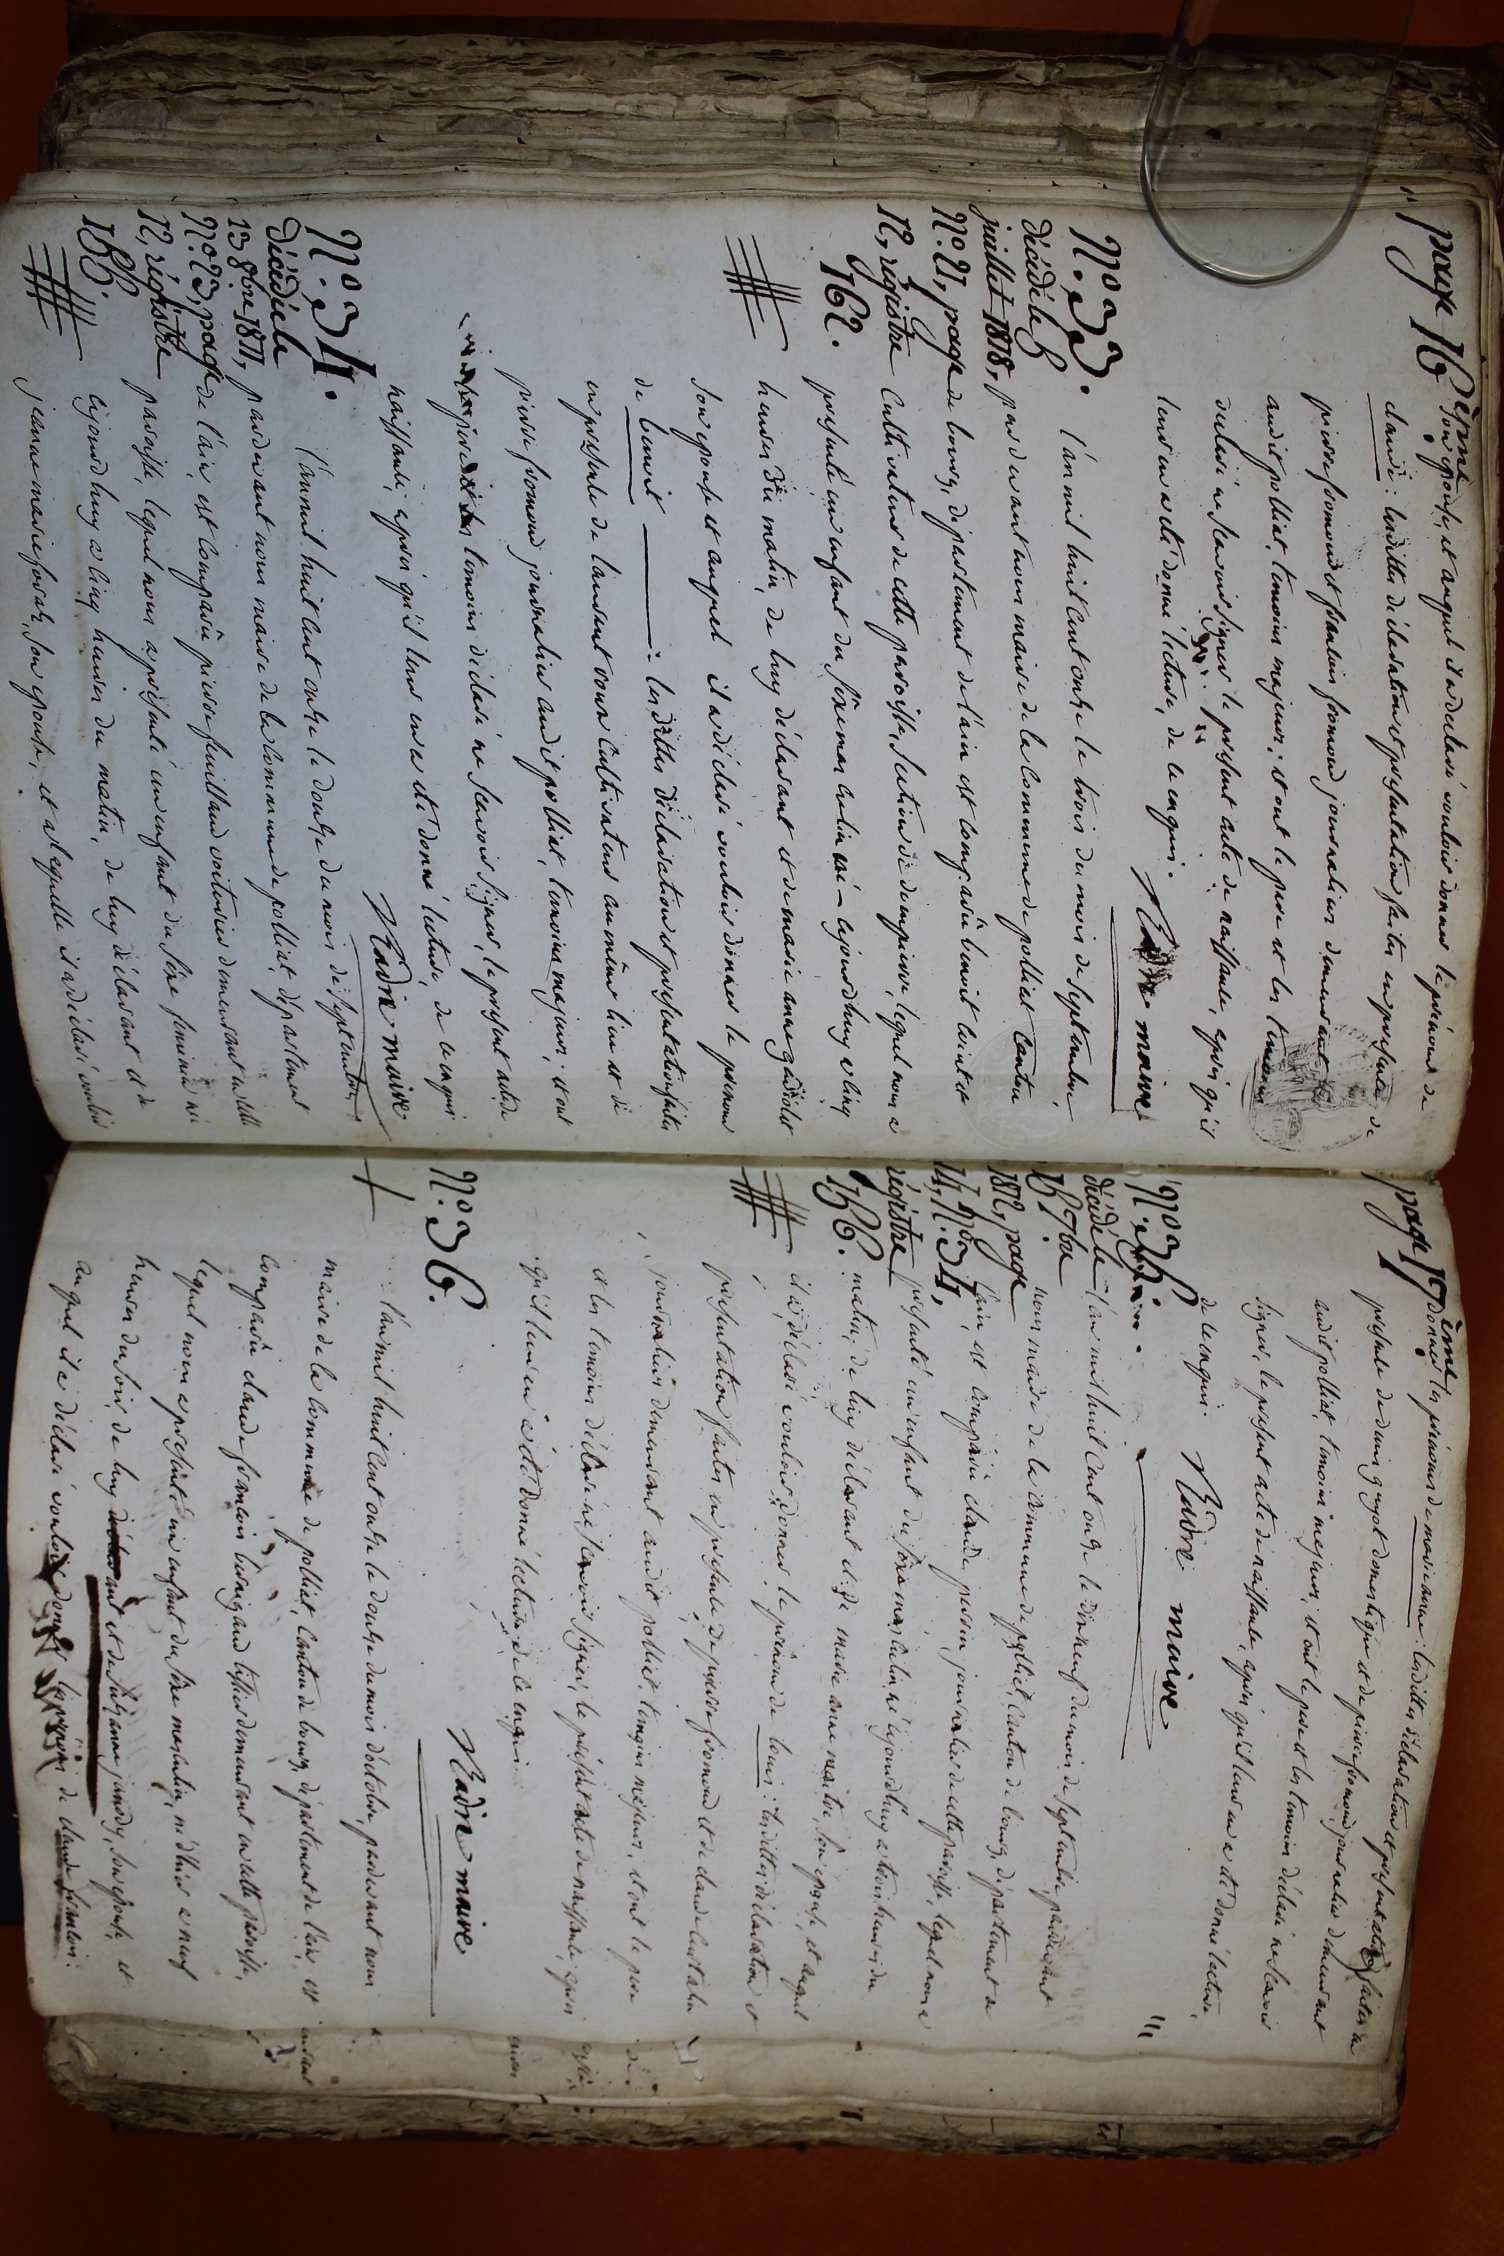 page 16 ème
son epouse, et auquel il a declaré vouloir donner le prénom de
claude : lesdittes déclaration et présentation faites en présence de
pierre fromond et françois fromond journaliers demeurant
audit polliat, temoins majeurs, et ont le pere et les temoins
declaré ne scavoir signer le présent acte de naissance, apres qu'il
leur en a été donné lecture, de ce enquis.
maire
N.º 33.
décédé le 8
juillet 1818,
N.º 21, page
12, régistre
162.
L'an mil huit cent onze le trois du mois de septembre
par devant nous maire de la commune de polliat canton
de bourg, département de l'ain est comparu benoit
cultivateur de cette paroisse, section de dompierre, lequel nous a
présenté un enfant du sexe masculin né cejourdhuy a cinq
heures du matin, de luy déclarant et de marie
son epouse et auquel il a déclaré vouloir donner le prénom
de benoit : lesdittes déclaration et présentation faites
en présence de laurent cultivateur au même lieu et de
pierre fromond journalier audit polliat, temoins majeurs, et ont
le pere et les temoins déclaré ne scavoir signer, le présent acte de
naissance, apres qu'il leur en a été donné lecture, de ce enquis
maire
N.º 34.
décédée le
13 8bre 1811,
N.º 23, page
12, régistre
186.
L'an mil huit cent onze le douze du mois de septembre
par devant nous maire de la commune de polliat, département
de l'ain, est comparu pierre voiturier demeurant en cette
paroisse, lequel nous a présenté un enfant du sexe feminin né
cejourdhuy a cinq heures du matin, de luy déclarant et de
jeanne marie son epouse, et a laquelle il a déclaré vouloir
page 17 ème
donner les prénoms de marie anne : lesdittes déclaration et présentation faites en
présence de denis guyot domestique et de pierre fromond journalier demeurant
audit polliat, temoins majeurs, et ont le pere et les temoins déclaré ne scavoir
signer, le présent acte de naissance, apres qu'il leur en a été donné lecture,
de ce enquis.
maire
N.º 35.
décédé le
16 7bre
1812, page
14, N.º 34,
régistre
186.
L'an mil huit cent onze le dixneuf du mois de septembre, pardevant
nous maire de la commune de polliat, canton de bourg, département de
l'ain, est comparu claude journalier de cette paroisse, lequel nous a
présenté un enfant du sexe masculin né cejourdhuy a trois heures du
matin, de luy déclarant et de marie anne son epouse, et auquel
il a déclaré vouloir donner le prénom de louis : lesdittes déclaration et
présentation faites en présence de pierre fromond et de claude
journaliers demeurant audit polliat, temoins majeurs, et ont le pere
et les temoins déclaré ne scavoir signer, le présent acte de naissance, apres
qu'il leur en a été donné lecture de ce enquis
maire
N.º 36.
L'an mil huit cent onze le douze du mois d'octobre, pardevant nous
maire de la commune de polliat, canton de bourg, département de l'ain, est
comparu claude françois tissier demeurant en cette paroisse,
lequel nous a présenté un enfant du sexe masculin, né d'hier a neuf
heures du soir, de luy déclarant et de son epouse, et
auquel il a déclaré vouloir donner les prénoms de claude françois :